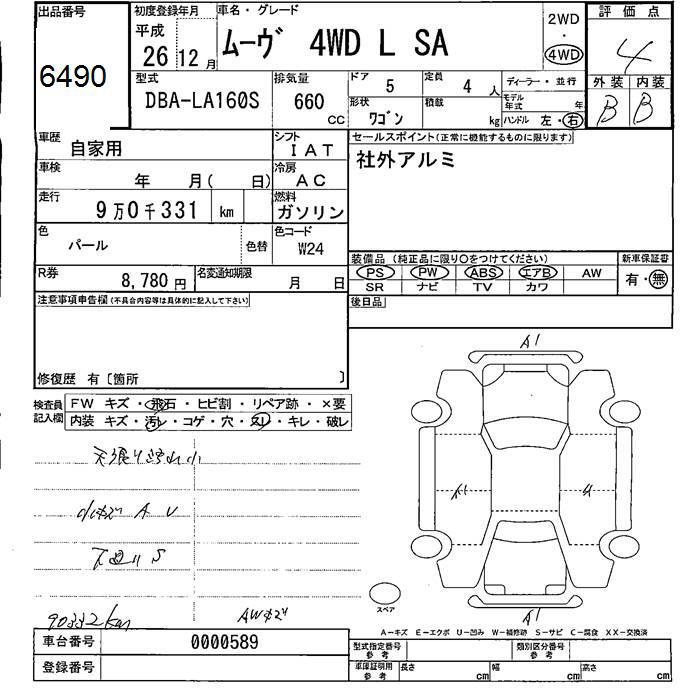 出品番号
6490
初度登録年月
平成
26 12 月
車名・グレード
ムーヴ 4WD L SA
2WD
・
4WD
評価点
4
型式
DBA-LA160S
排気量
660
CC
ドア
5
定員
4 人
ディーラー・並行
外装 内装
B B
形状
ワゴン
積載
kg
モデル年式
年
ハンドル 左・右
車歴
自家用
シフト
IAT
セールスポイント(正常に機能するものに限ります)
社外アルミ
車検
年 月( 日)
冷房
AC
走行
9万0千331 km
燃料
ガソリン
色
パール
色替
色コード
W24
装備品 (純正品に限り○をつけてください)
PS PW ABS エアB AW
SR ナビ TV カワ
新車保証書
有・無
R券
8,780 円
名変通知期限
月 日
後日品
注意事項申告欄(不具合内容等は具体的に記入して下さい)
修復歴 有〔箇所 〕
検査員記入欄
FW キズ・飛石・ヒビ割・リペア跡・×要
内装 キズ・汚レ・コゲ・穴・スレ・キレ・破レ
A1
小キズ A U
S
90332km
AWキズ
A1
スペア
A−キズ E−エクボ U−凹み W−補修跡 S−サビ C−腐食 XX−交換済
車台番号
0000589
登録番号
型式指定番号
参考
類別区分番号
参考
車庫証明用
参考
長さ cm
幅 cm
高さ cm